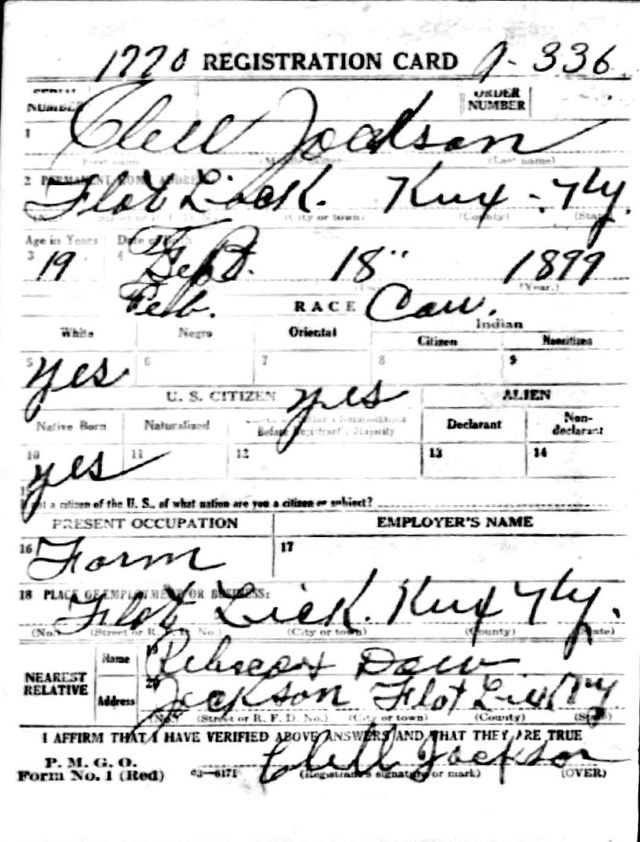 1770 REGISTRATION CARD A-336
NUMBER ORDER NUMBER
1 Clell Jackson
First name (Last name)
2 PERMANENT HOME ADDRESS
Flat Lick. Knx - Ky.
(No.) (City or town) (County) (State)
Age in Years Date of Birth
3 19 4 Sept. 18" 1899
(Year.)
Feb. RACE Cau.
White Negro Oriental Indian
Citizen Noncitizen
5 yes 6 7 8 9
U. S. CITIZEN yes ALIEN
Native Born Naturalized Before Registrant's Majority Declarant Non-declarant
10 yes 11 12 13 14
not a citizen of the U. S., of what nation are you a citizen or subject?
PRESENT OCCUPATION EMPLOYER'S NAME
16 Farm 17
18 PLACE OF EMPLOYMENT OR BUSINESS:
Flat Lick. Knx Ky.
(No.) (Street or R. F. D. No.) (City or town) (County) (State)
NEAREST RELATIVE Name 19
Address 20 Jackson Flat Lick Ky
(No.) (Street or R. F. D. No.) (City or town) (County) (State)
I AFFIRM THAT I HAVE VERIFIED ABOVE ANSWERS AND THAT THEY ARE TRUE
P. M. G. O.
Form No. 1 (Red) 03—6171 Clell Jackson
(Registrant's signature or mark) (OVER)